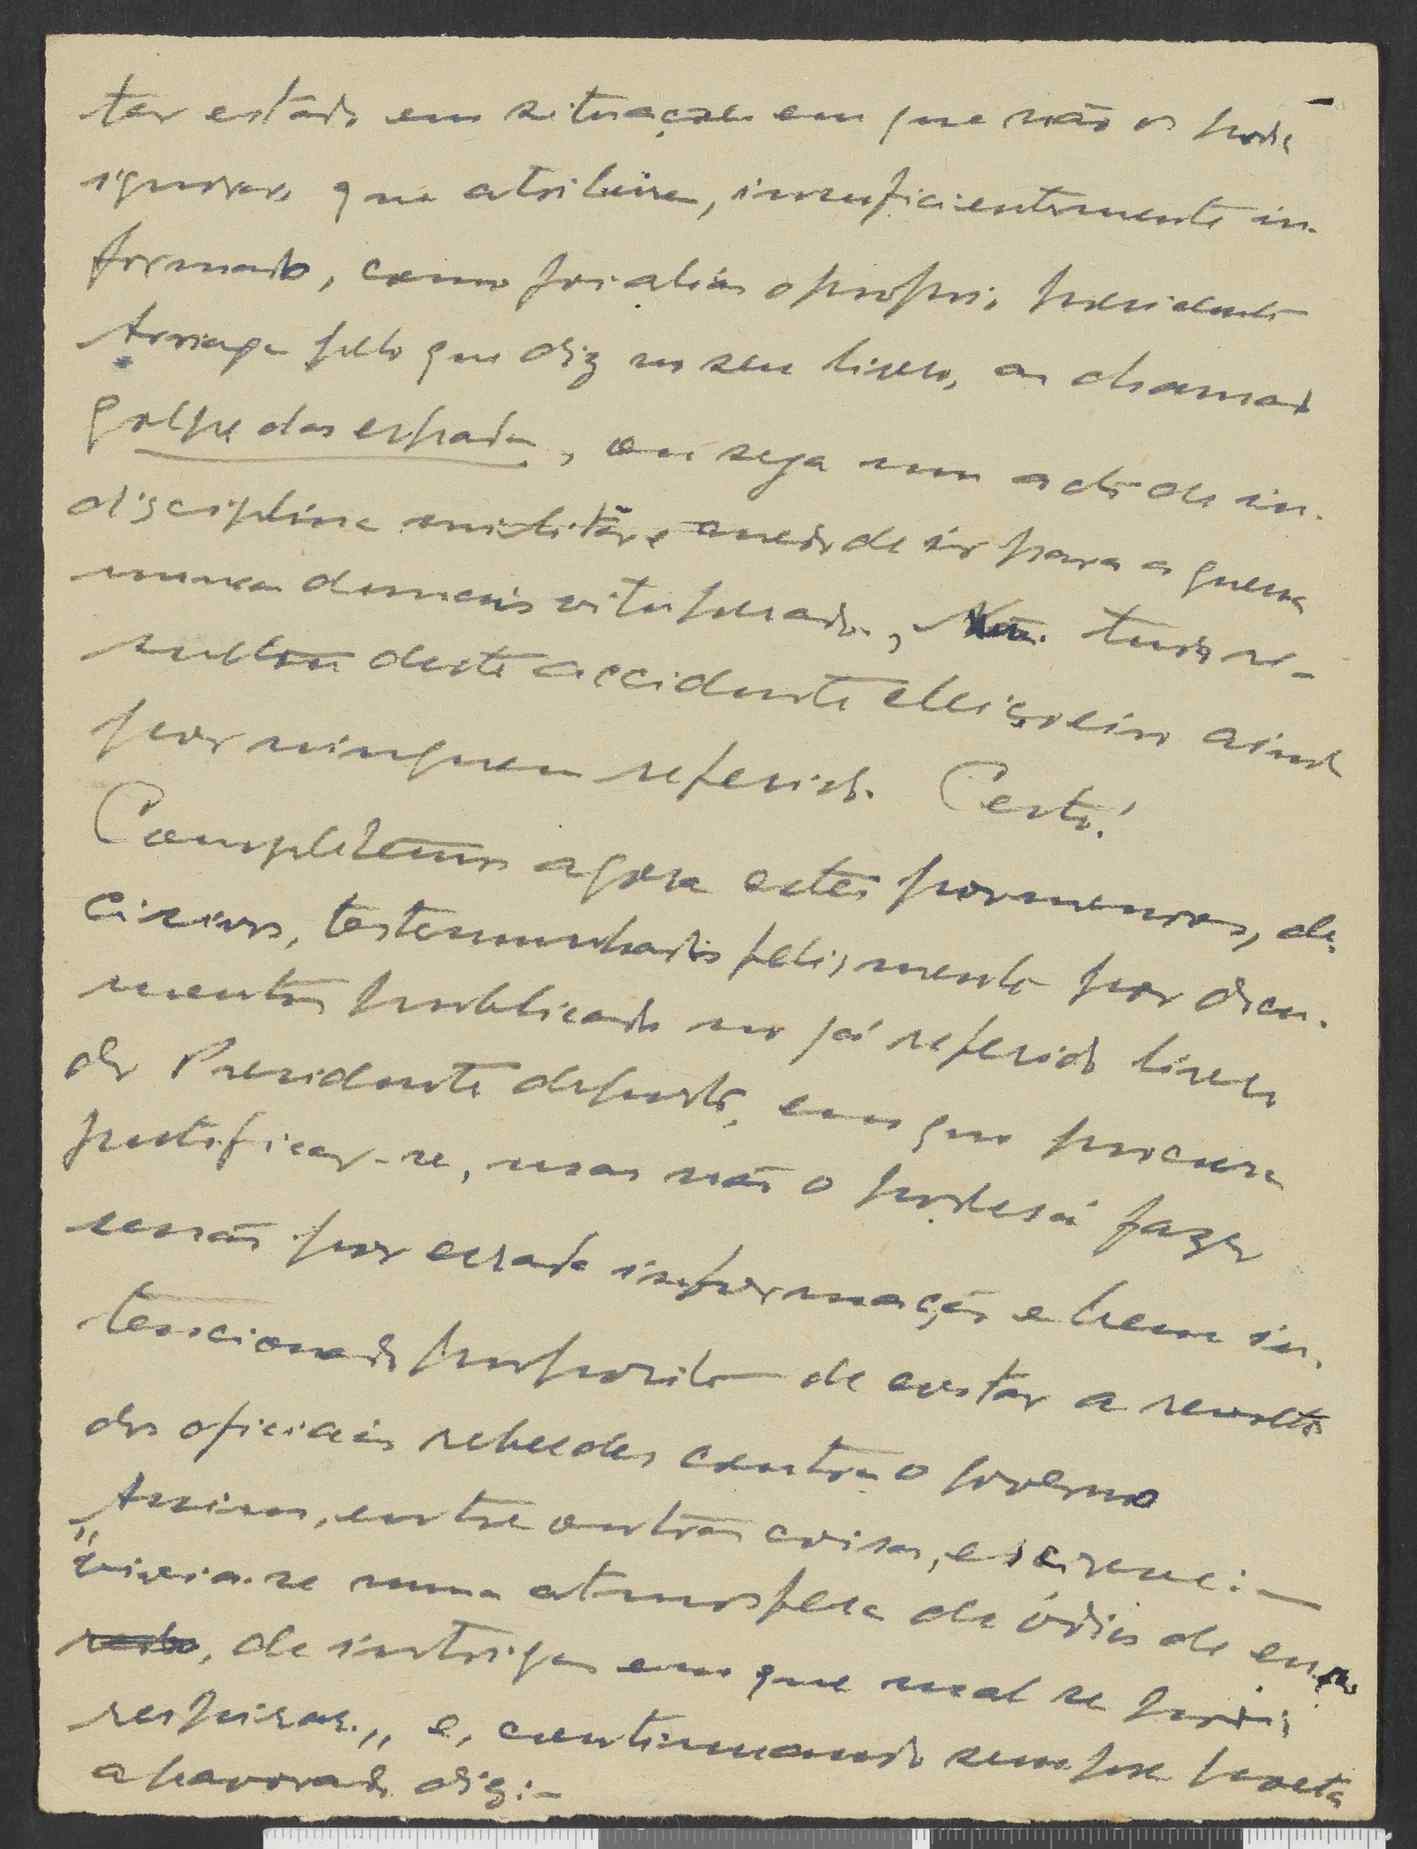 ter estado em situações em que não os podia
ignorar, que atribuira, insuficientemente in-
formado, como foi aliás o proprio presidente
Arriaga pelo que diz no seu livro, ao chamado
golpe das espadas, ou seja um acto de in-
disciplina militar e medo de ir para a guerra
nunca demais vituperado, tudo re-
sultou deste accidente eleiçoeiro ainda
por ninguem referido. Certo!
Completemos agora estes pormenores, de-
cisivos, testemunhados felizmente por docu-
mentos publicados no já referido livro
do Presidente deposto, em que procura
justificar-se, mas não o poderá fazer
senão por errada informação e bem in-
tencionado proposito de evitar a revolta
dos oficiais rebeldes contra o governo
Assim, entre outras coisas, escreve:-
"vivia-se numa atmosfera de ódios de
, de intrigas em que mal se podia
respirar", e, continuando sempre poeta
apavorado diz:-